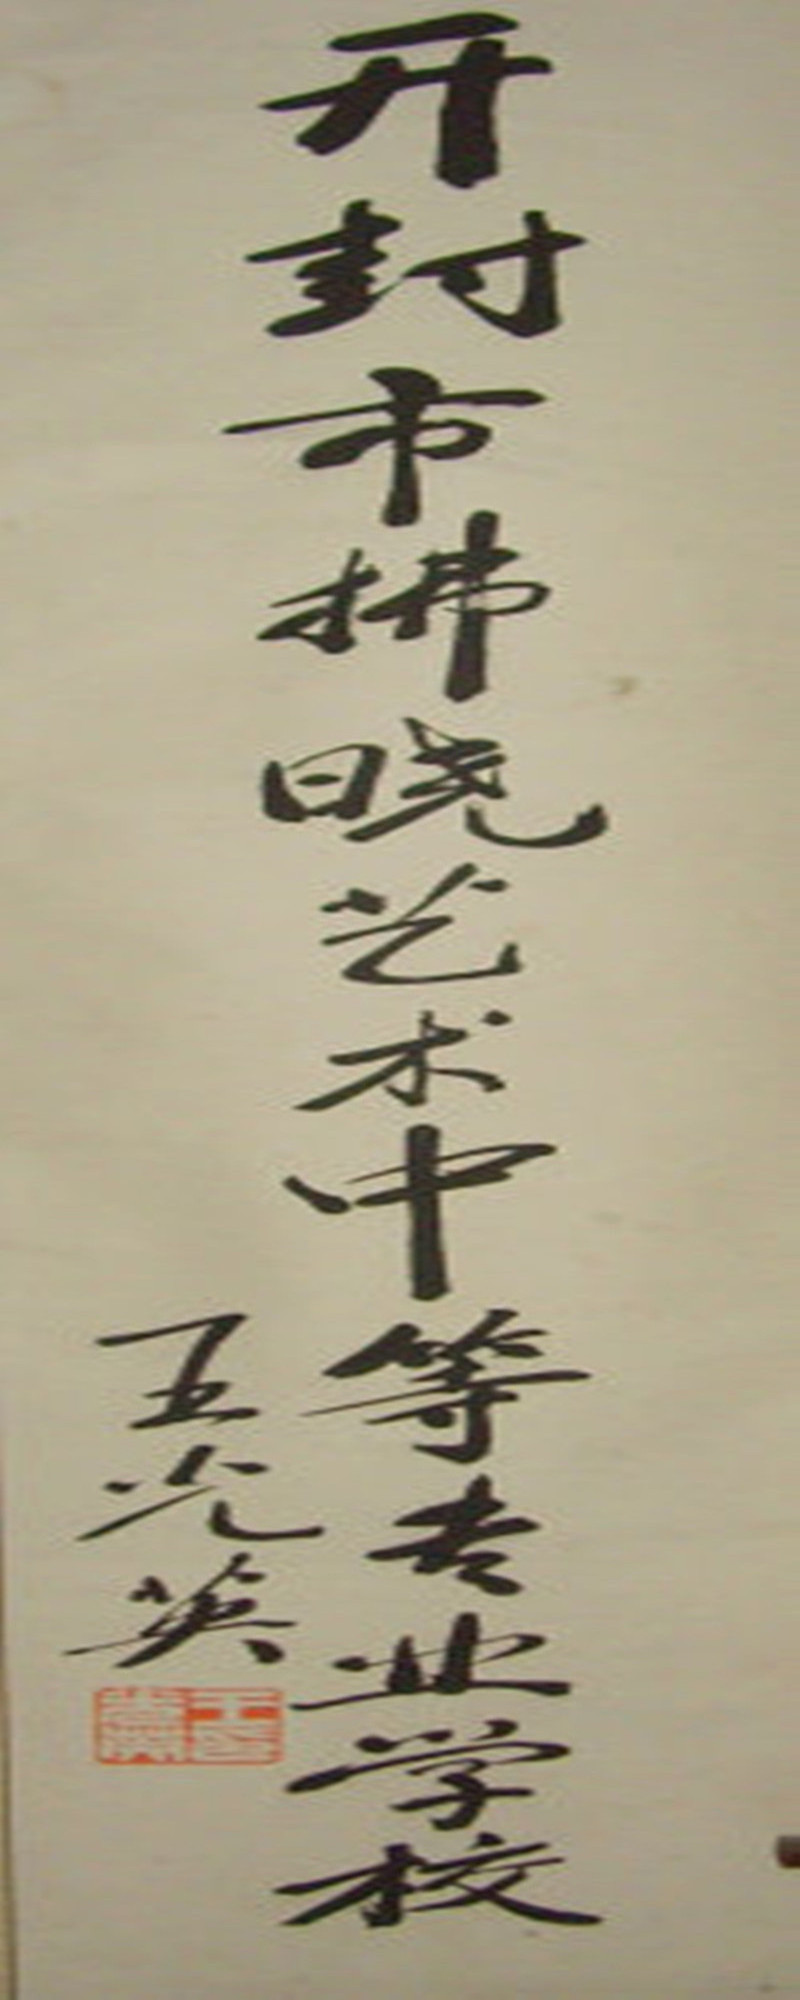 开封市拂晓艺术中等专业学校
王光英